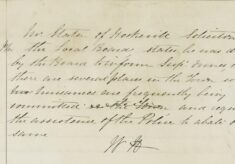 Mr Slater of Solicitor
the Local Board, states he was d
by the Board to inform Supt
there are several places in the Town w
nuisances are frequently being
committed in the Town and requ
the assistance of the Police to abate
same
W H